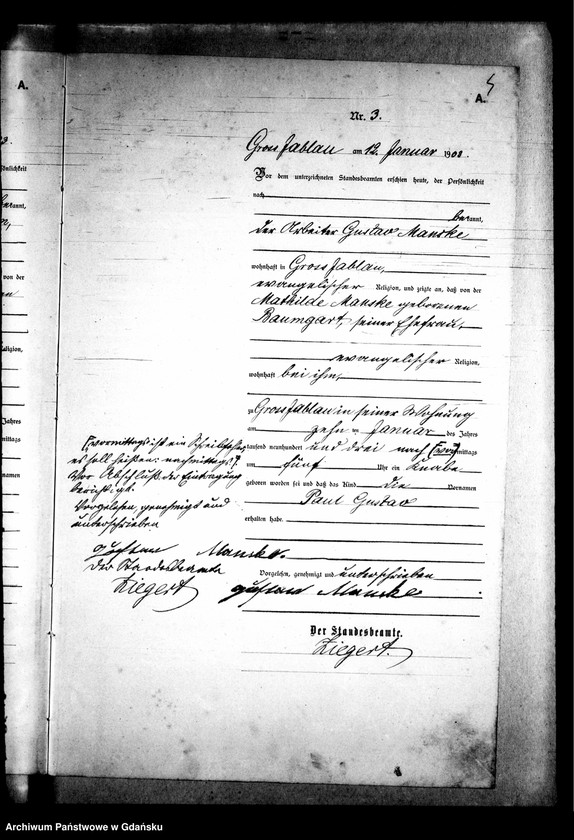 A.
5
A.
Nr. 3.
Gross Jablau am 12. Januar 1903.
Vor dem unterzeichneten Standesbeamten erschien heute, der Persönlichkeit
nach
bekannt,
der Arbeiter Gustav Manske
wohnhaft in Gross Jablau,
evangelischer Religion, und zeigte an, daß von der
Mathilde Manske geborenen
Baumgart, seiner Ehefrau,
evangelischer Religion,
wohnhaft bei ihm,
zu Gross Jablau in seiner Wohnung
am zehn ten Januar des Jahres
tausend neunhundert und drei nach [vor]mittags
um fünf Uhr ein Knabe
geboren worden sei und daß das Kind die Vornamen
Paul Gustav
erhalten habe.
[vormittags ist ein Schreibfehler,
es soll heißen: nachmittags].
Vor Abschluß der Eintragung
berichtigt.
Vorgelesen, genehmigt und
unterschrieben
Gustav Manske.
Der Standesbeamte
Ziegert
Vorgelesen, genehmigt und unterschrieben
Gustav Manske
Der Standesbeamte.
Ziegert.
Archiwum Państwowe w Gdańsku